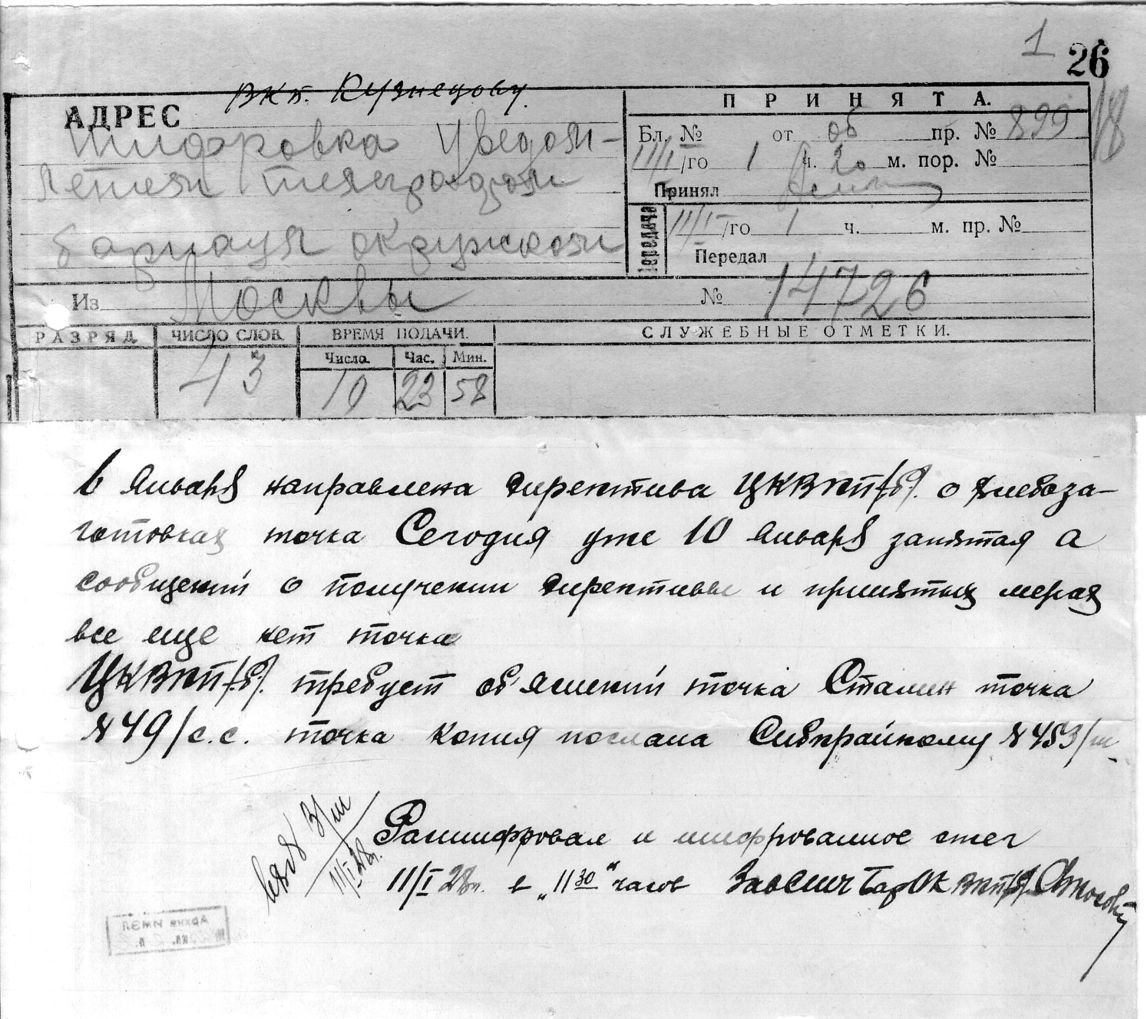 1
26
18
вкп. Кузнецову
АДРЕС
Шифровка Уведом-
летели телеграфом
барнаул окружком
Из Москвы
ПРИНЯТА.
Бл. № от об пр. № 899
11/I/го 1 ч. 20 м. пор. №
Принял
11/I/го 1 ч. м. пр. №
Передал
№ 14726
РАЗРЯД. ЧИСЛО СЛОВ. ВРЕМЯ ПОДАЧИ. СЛУЖЕБНЫЕ ОТМЕТКИ.
Число. Час. Мин.
43 10 23 58
6 Января направлена директива ЦКВКП/б/. о хлебоза-
готовках точка Сегодня уже 10 Января запятая а
сообщений о получении директивы и принятых мерах
все еще нет точка
ЦКВКП/б/. требует об'яснений точка Сталин точка
№49/с.с. точка Копия послана Сибкрайкому №453/ш.
Расшифровал и шифрованное сжег
11/I 28г. в "11 30" часов ЗавСПЧ БарОК ВКП/б/.
3/ш
11/I 28г.